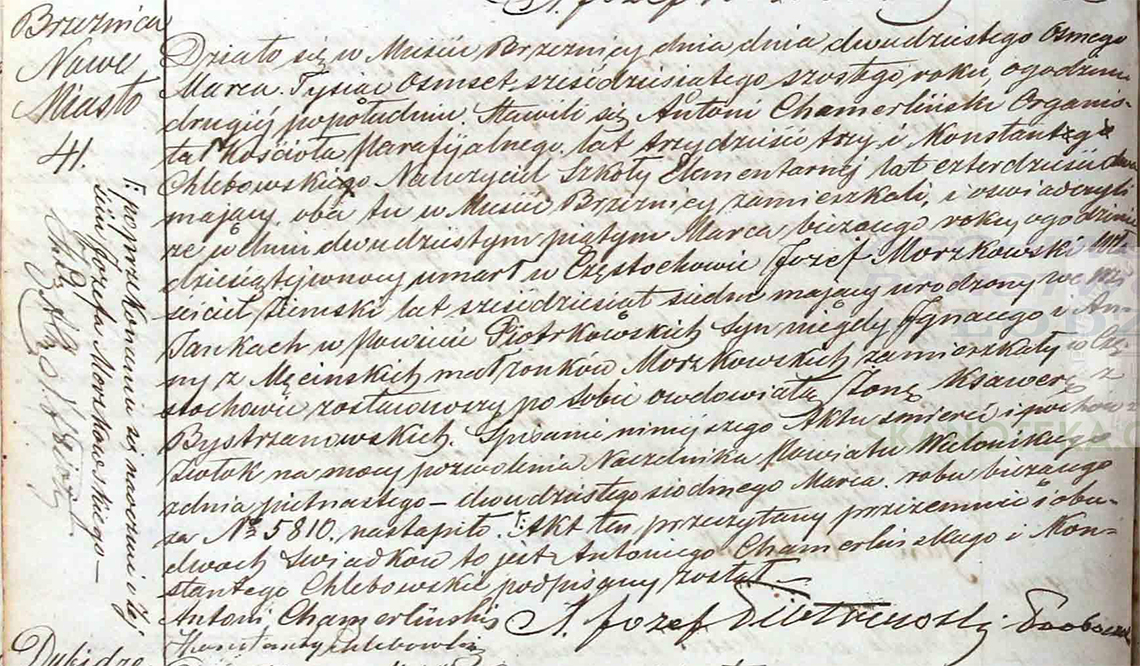 Brzeznica
Nowe
Miasto
41.
Działo się w Mieście Brzeznicy dnia dnia dwudziestego Osmego
Marca Tysiąc Osmset sześdziesiątego szostego roku, o godzinie
drugiéj popołudniu. Stawili się Antoni Chamerliński Organis-
ta Kościoła Parafijalnego lat trzydzieści trzy i Konstanty
Chlebowskiego Nauczyciel Szkoły Elementarnéj lat czterdzieści dwa
mający, oba tu w Mieście Brzeznicy zamieszkali, i oswiadczyli
że w dniu dwudziestym piątym Marca bieżącego roku, o godzinie
dziesiątéj w nocy umarł w Częstochowie Jozef Morzkowski
ściciel Ziemski lat sześdziesiąt siedm mający urodzony we
Jankach w powiecie Piotrkowskich syn niegdy Jgnacego i An-
ny z Męcinskich małżonków Morzkowskich, zamieszkały w Czę-
stochowie, zostawiwszy po sobie owdowiałą Żonę Ksawerę z
Bystrzanowskich. Spisanie niniejszego Aktu śmierci i pochow
zwłok na mocy pozwolenia Naczelnika Powiatu Wielunskiego
z dnia pietnastego – dwudziestego siodmego Marca roku bieżącego
za No 5810. nastąpiło. Akt ten przeczytany przezemnie i obu-
dwoch Swiadków to jest Antoniego Chamerlinskiego i Kon-
stantego Chlebowskie podpisany został.
Antoni Chamerliński X. Jozef
Konstanty Chlebowski
po przekonaniu się naocznie o tej
Jozefa Morzkowskiego –
SKANOTEKA.G